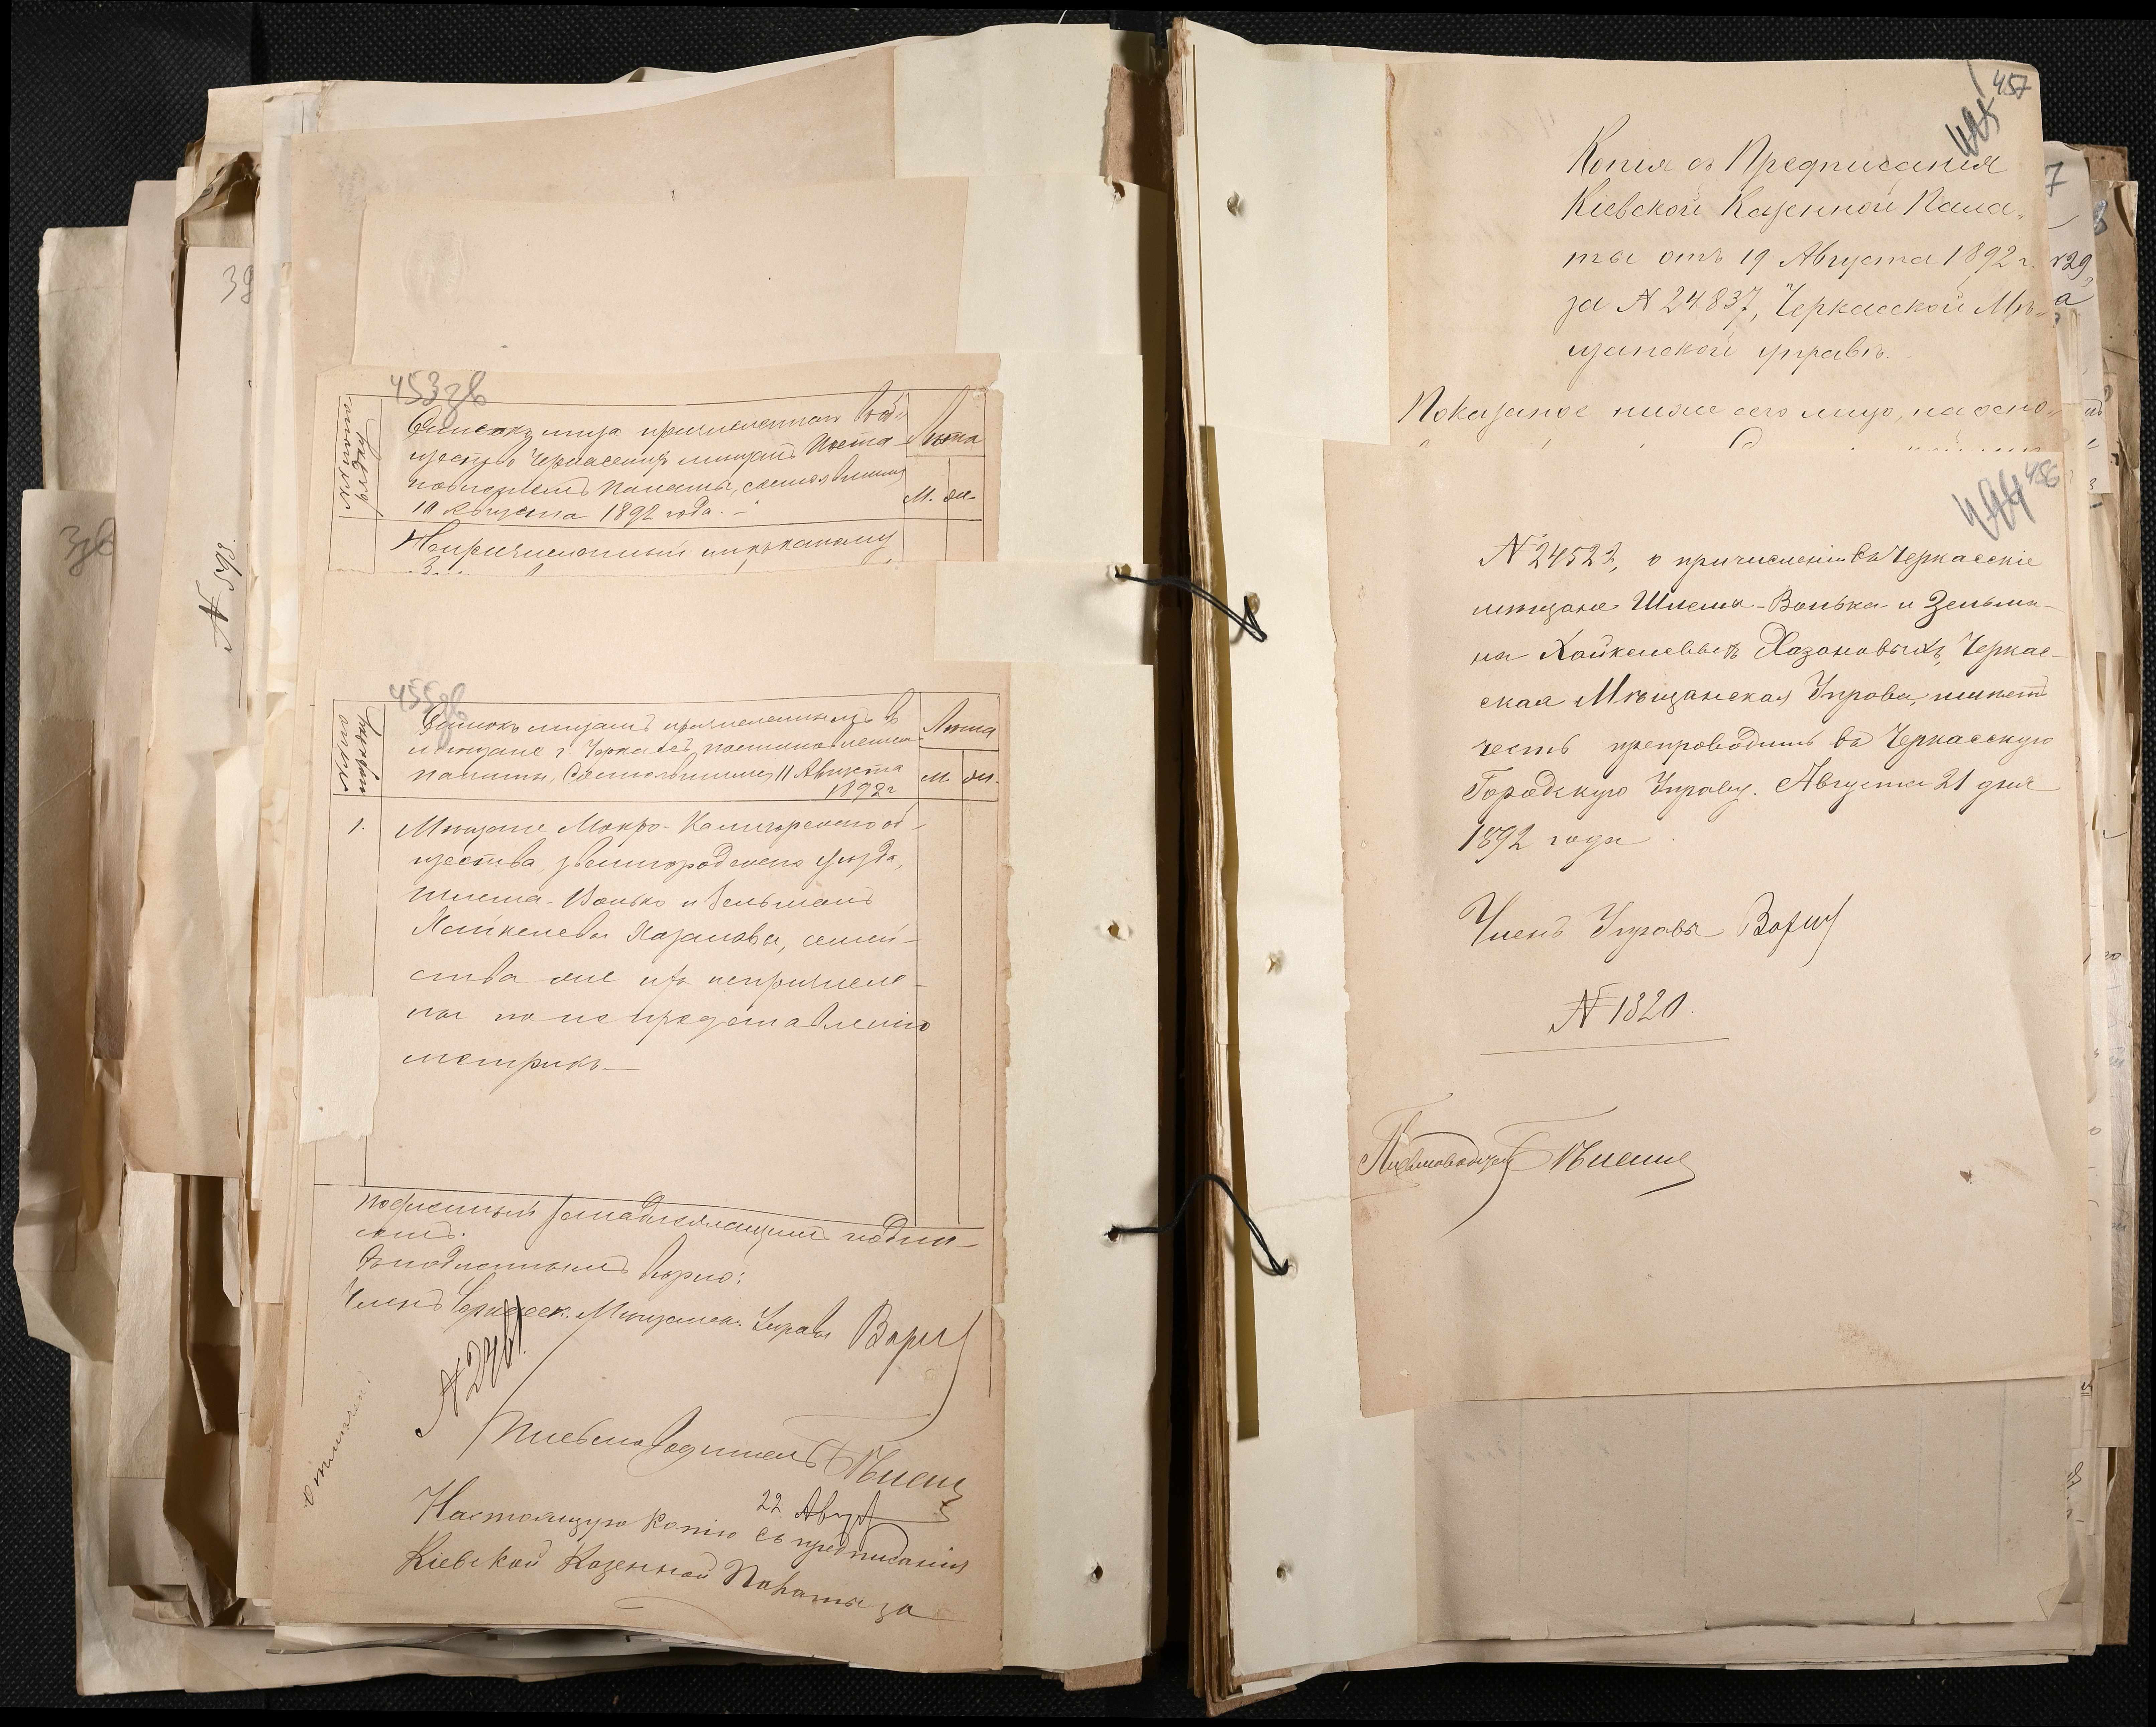 39
3зв
N 598.
453зв
Списокъ лица причисленнаго въ об-
щество Черкасскихъ мещанъ Поста-
новленіемъ Палаты, состоявшимся
10 Августа 1892 года. -
Лѣта
М. Ж.
Непричисленный ни къ какому
455зв
Списокъ лицамъ причисленнымъ въ
мѣщане г. Черкасъ, постановленіемъ
палаты, состоявшимся 11 Августа
1892 г
Лѣта
М. Ж.
1.
Мѣщане Мокро-Калигорскаго об-
щества, Звенигородскаго уѣзда,
Шлема-Волько и Зельманъ
Хайкелевы Хазановы, семей-
ства же ихъ непричисле-
ны по не представленію
метрикъ. —
Подлинный за надлежащимъ подпи-
сомъ.
Съ подлиннымъ вѣрно:
Членъ Черкасск. Мѣщанск. Управы
Письмоводитель
22 Авгус
Настоящую копію съ предписанія
Кіевской Казенной Палаты за
457
Копія съ Предписанія
Кіевской Казенной Пала-
ты отъ 19 Августа 1892 г.
за N 24837, Черкасской Мѣ-
щанской управѣ.
Показаное ниже сего лицо, на осно-
494 456
N 24522, о причисленіи въ Черкасскіе
мѣщане Шлема-Волька и Зельма-
на Хайкелевыхъ Хазановыхъ, Черкас-
ская Мѣщанская Управа, имѣетъ
честь препроводить въ Черкасскую
Городскую Управу. Августа 21 дня
1892 года
Членъ Управы
N 1320.
Письмоводитель